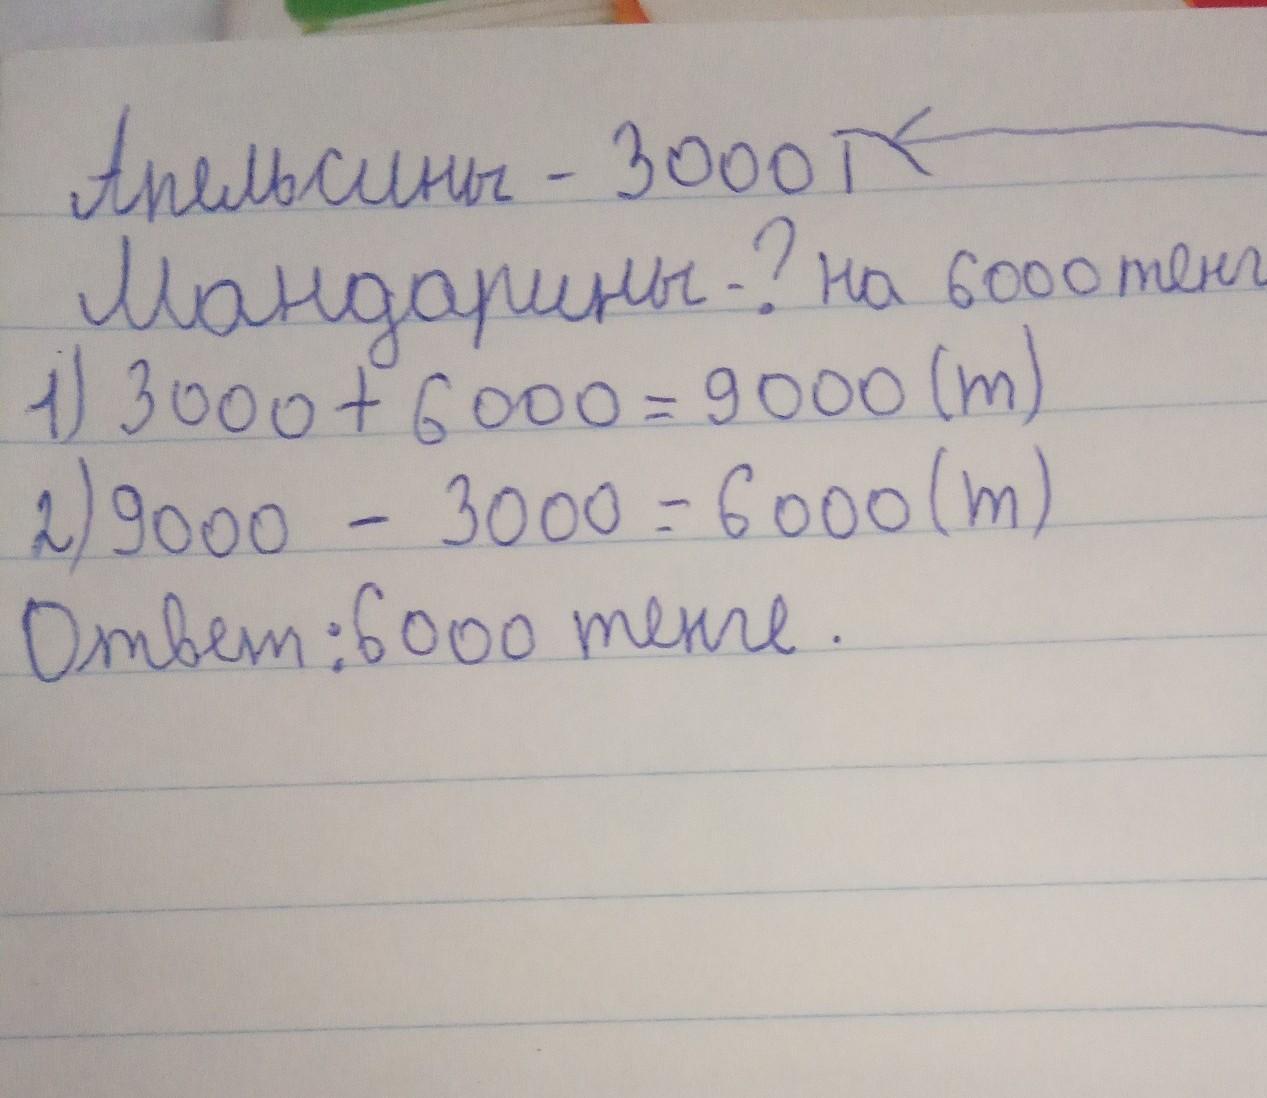 Апельсины - 3000 Т
Мандарины - ? на 6000 тенг
1) 3000 + 6000 = 9000 (т)
2) 9000 - 3000 = 6000 (т)
Ответ: 6000 тенге.